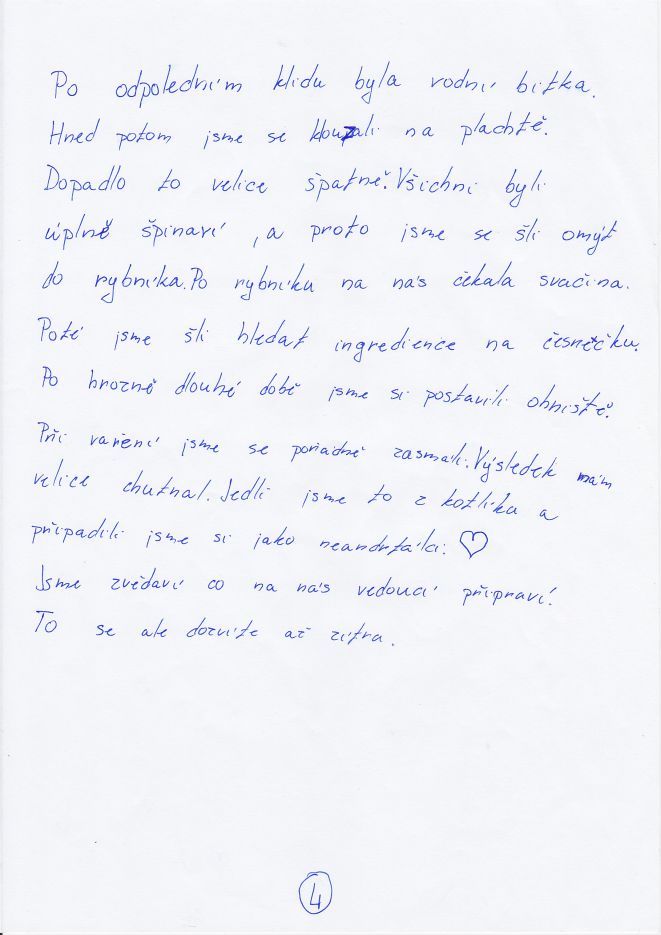 Po odpoledním klidu byla vodní bitka.
Hned potom jsme se klouzali na plachtě.
Dopadlo to velice špatně. Všichni byli
úplně špinaví , a proto jsme se šli omýt
do rybníka. Po rybníku na nás čekala svačina.
Poté jsme šli hledat ingredience na česnečku.
Po hrozně dlouhé době jsme si postavili ohniště.
Při vaření jsme se pořádně zasmáli. Výsledek nám
velice chutnal. Jedli jsme to z kotlíku a
připadili jsme si jako neandrtálci. ♡
Jsme zvědaví co na nás vedoucí připraví.
To se ale dozvíte až zítra.
4